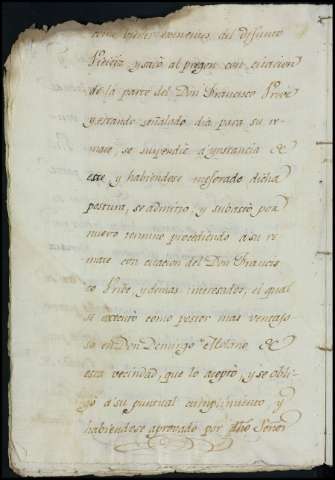 como bienes exsinentes del difunto
y sacó al pregon con citacion
de la parte del Don Francisco Uribe
y estando señalado dia para su re-
mate, se suspendió a ynstancia de
este, y habiendose mejorado dicha
postura, se admitió y subastó por
nuevo termino procediendo a su re
mate con citacion del Don Francis
co Uribe, y demas interesados, el qual
se executó como postor mas ventajo
so en Don Domingo Molano de
esta vecindad, que lo aceptó, y se obli-
gó a su puntual cumplimiento y
habiendose aprovado por dho Señor